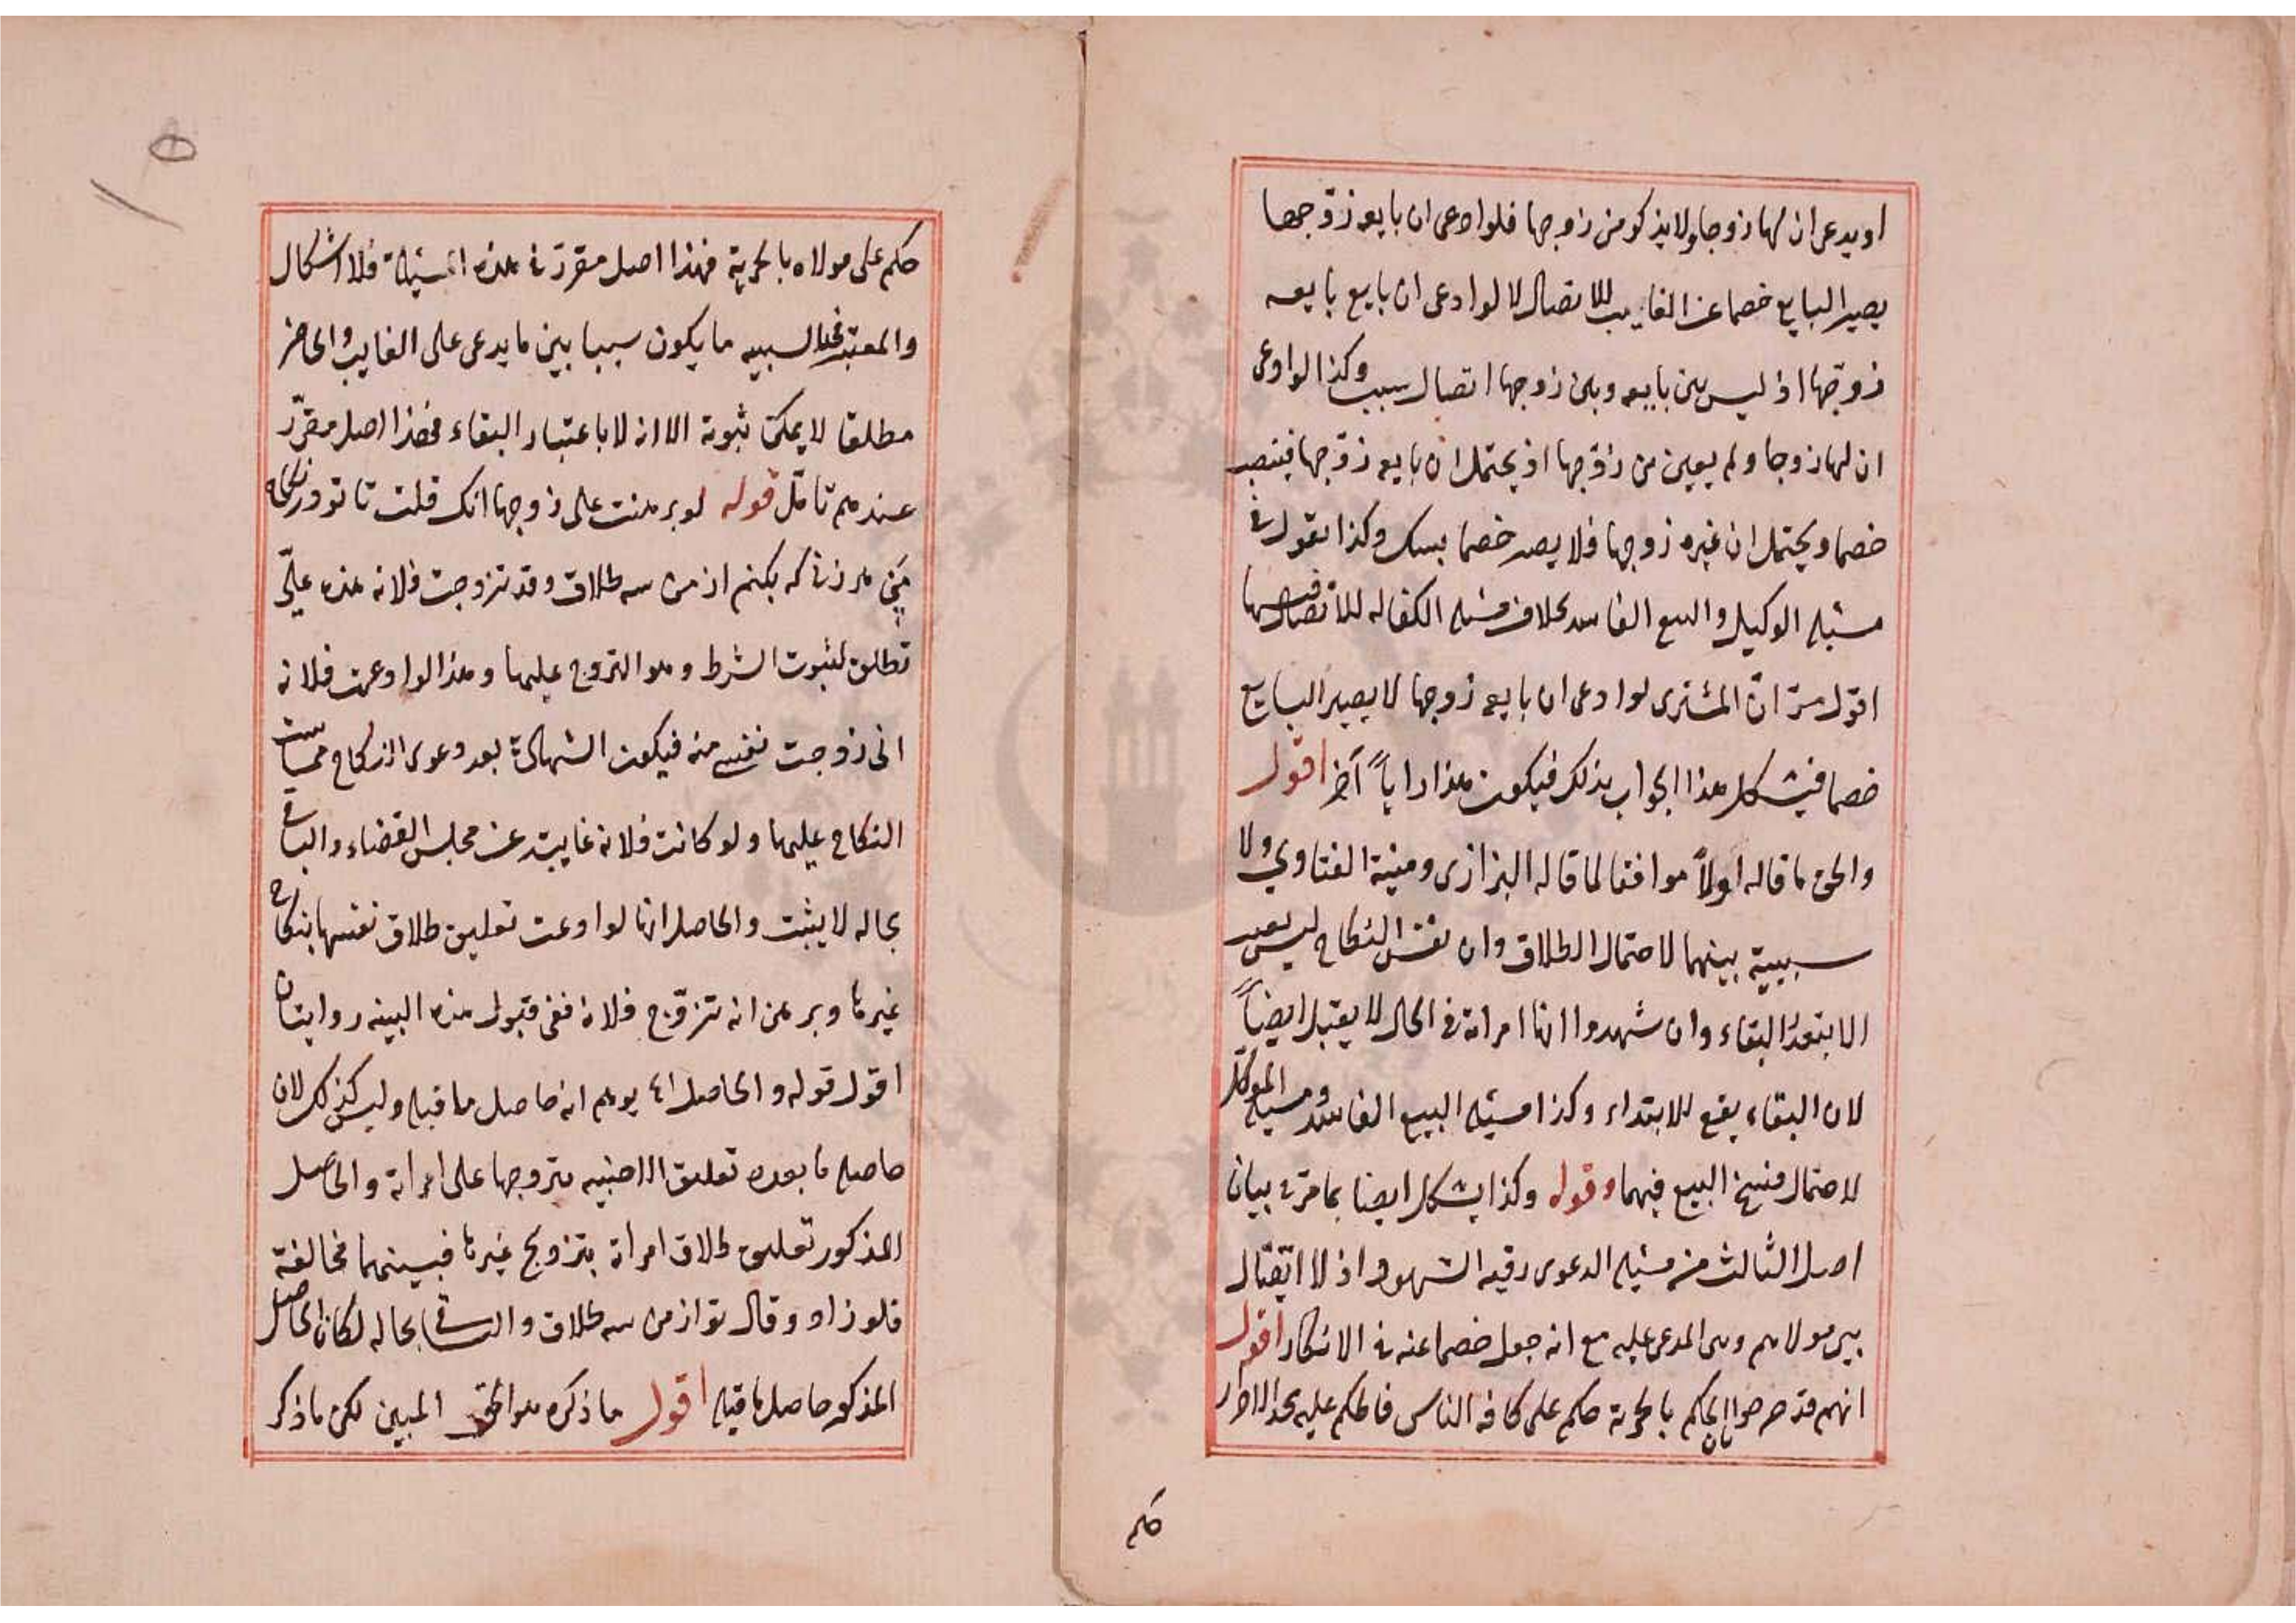 او يدعى ان لها زوجا ولا يذكر من زوجها فلو ادعى ان بايعه زوجها
يصير البايع خصما عن الغايب للاتصال لا لو ادعى ان بايع بايعه
زوجها اذ ليس بين بايعه وبين زوجها اتصال سبب وكذا لو ادعى
ان لها زوجا ولم يعين من زوجها اذ يحتمل ان بايعه زوجها فينتصب
خصما ويحتمل ان غيره زوجها فلا يصير خصما بشك وكذا نقول في
مسئلة الوكيل والبيع الفاسد بخلاف مسئلة الكفالة للاتصال فيها
اقول مر ان المشترى لو ادعى ان بايعه زوجها لا يصير البايع
خصما فيشكل هذا الجواب بذلك فيكون هذا رايا آخر اقول
والحق ما قاله اولا موافقا لما قاله البزازى ومنية الفتاوي ولا
سببية بينهما لاحتمال الطلاق وان نفس النكاح ليس بسبب
الا بتقدير البقاء وان شهدوا انها امراته في الحال لا يقبل ايضا
لان البقاء يقع للابتداء وكذا مسئلة البيع الفاسد ومسئلة الموكل
لاحتمال فسخ البيع فيهما وقوله وكذا يشكل ايضا بما مر في بيان
اصل الثالث من مسئلة الدعوى رقية الشهود اذ لا اتصال
بين مولاهم وبين المدعى عليه مع انه جعل خصما عنه في الانكار اقول
انهم قد صرحوا ان الحكم بالحرية حكم على كافة الناس فالحكم عليه بحد الاحرار
حكم
حكم على مولاه بالحرية فهذا اصل مقرر في هذه المسئلة فلا اشكال
والمعتبر في السببية ما يكون سببا بين ما يدعى على الغايب والحاضر
مطلقا لا يمكن ثبوته الا انه لا باعتبار البقاء فهذا اصل مقرر
عندهم تامل قوله لو برهنت على زوجها انك قلت تا تو در نكاح
مني هر زنى كه بكنم از من سه طلاق وقد تزوجت فلانه هذه علي
تطلق لثبوت الشرط وهو التزوج عليها وهذا لو ادعت فلانة
انى زوجت نفسي منه فيكون الشهادة بعد دعوى النكاح
النكاح عليها ولو كانت فلانه غايبة عن مجلس القضاء والباقى
بحاله لا يثبت والحاصل انها لو ادعت تعليق طلاق نفسها بنكاح
غيرها وبرهن انه تزوج فلانة ففى قبول هذه البينه روايتان
اقول قوله والحاصل اه يوهم انه حاصل ما قبله وليس كذلك لان
حاصله ما بعده تعليق الاجنبيه بتزوجها على امراته والحاصل
المذكور تعليق طلاق امراة بتزوج غيرها فبينهما مخالفة
فلو زاد وقال تو از من سه طلاق والباقى بحاله لكان الحاصل
المذكور حاصل ما قبله اقول ما ذكره هو الحق المبين لكن ما ذكر